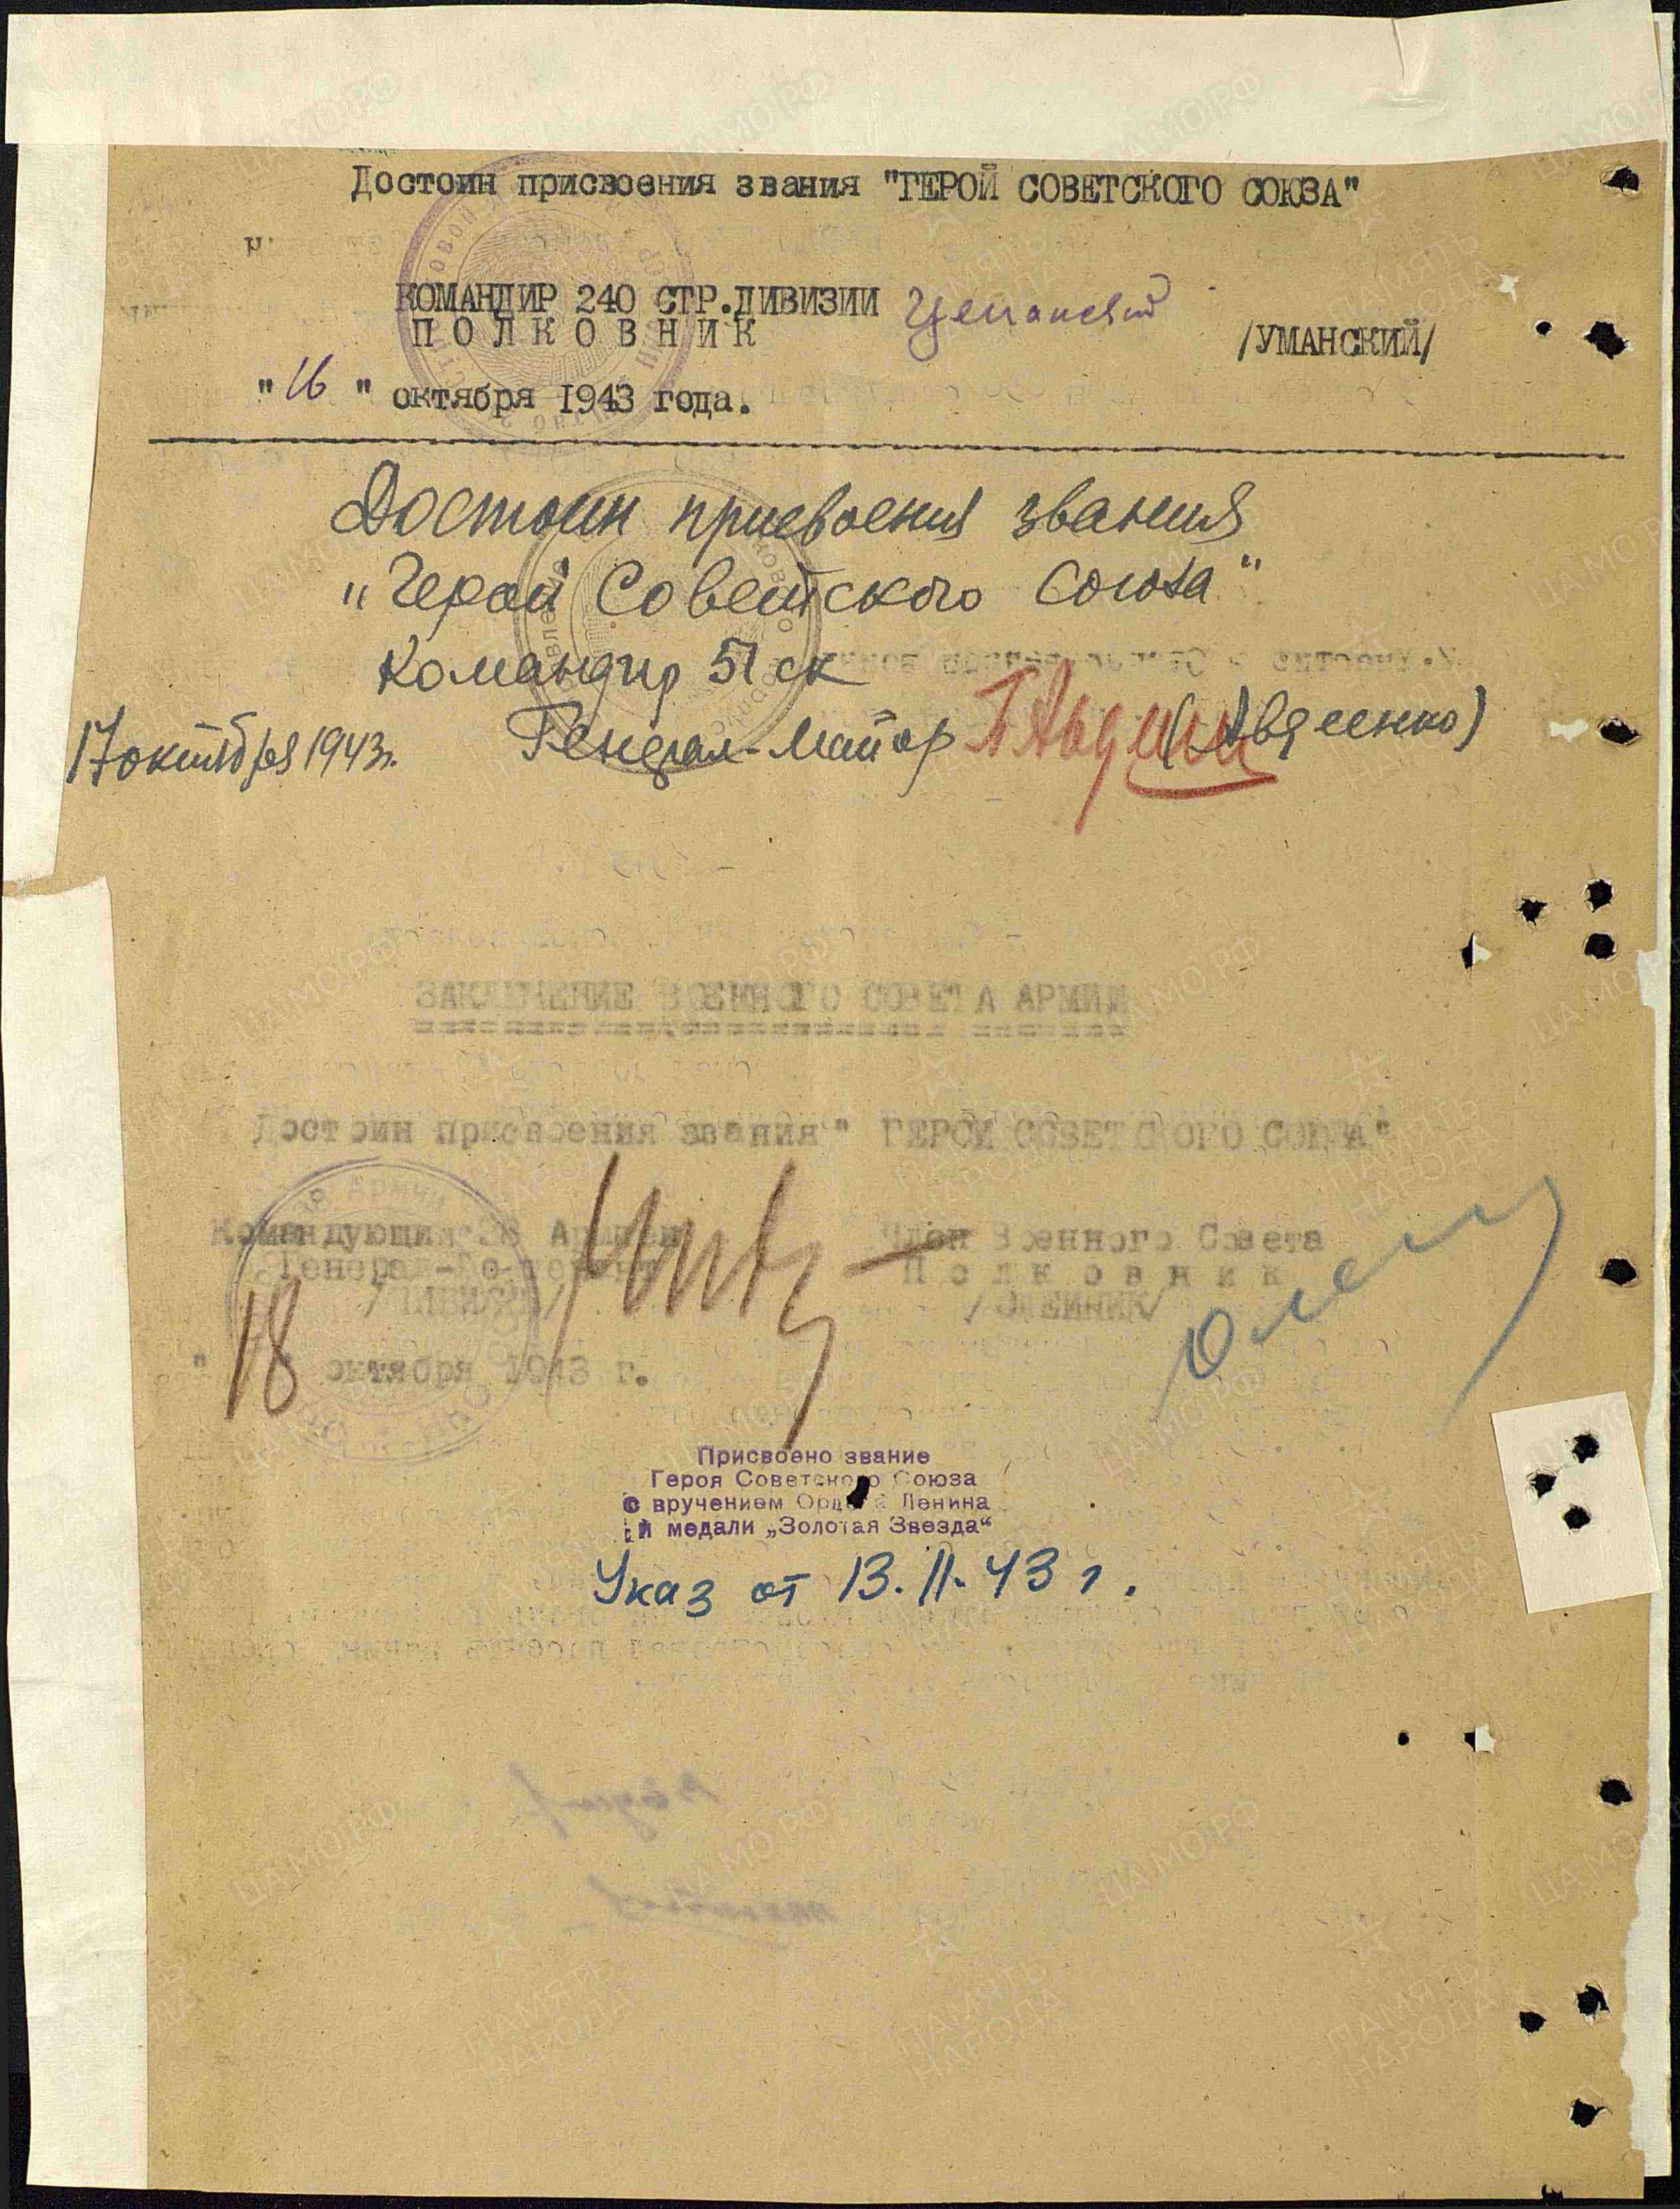 Достоин присвоения звания "ГЕРОЙ СОВЕТСКОГО СОЮЗА"
КОМАНДИР 240 СТР.ДИВИЗИИ
ПОЛКОВНИК
/УМАНСКИЙ/
"16" октября 1943 года.
Достоин присвоения звания
"Герой Советского Союза"
Командир 51 ск
Генерал-майор (Авдеенко)
17 октября 1943г.
ЗАКЛЮЧЕНИЕ ВОЕННОГО СОВЕТА АРМИИ
Достоин присвоения звания "ГЕРОЙ СОВЕТСКОГО СОЮЗА"
Командующий 38 Армией Член Военного Совета
Генерал-Лейтенант Полковник
/ЧИБИСОВ/ /ОЛЕЙНИК/
"18 октября 1943 г.
Присвоено звание
Героя Советского Союза
с вручением Ордена Ленина
и медали „Золотая Звезда“
Указ от 13.11.43 г.